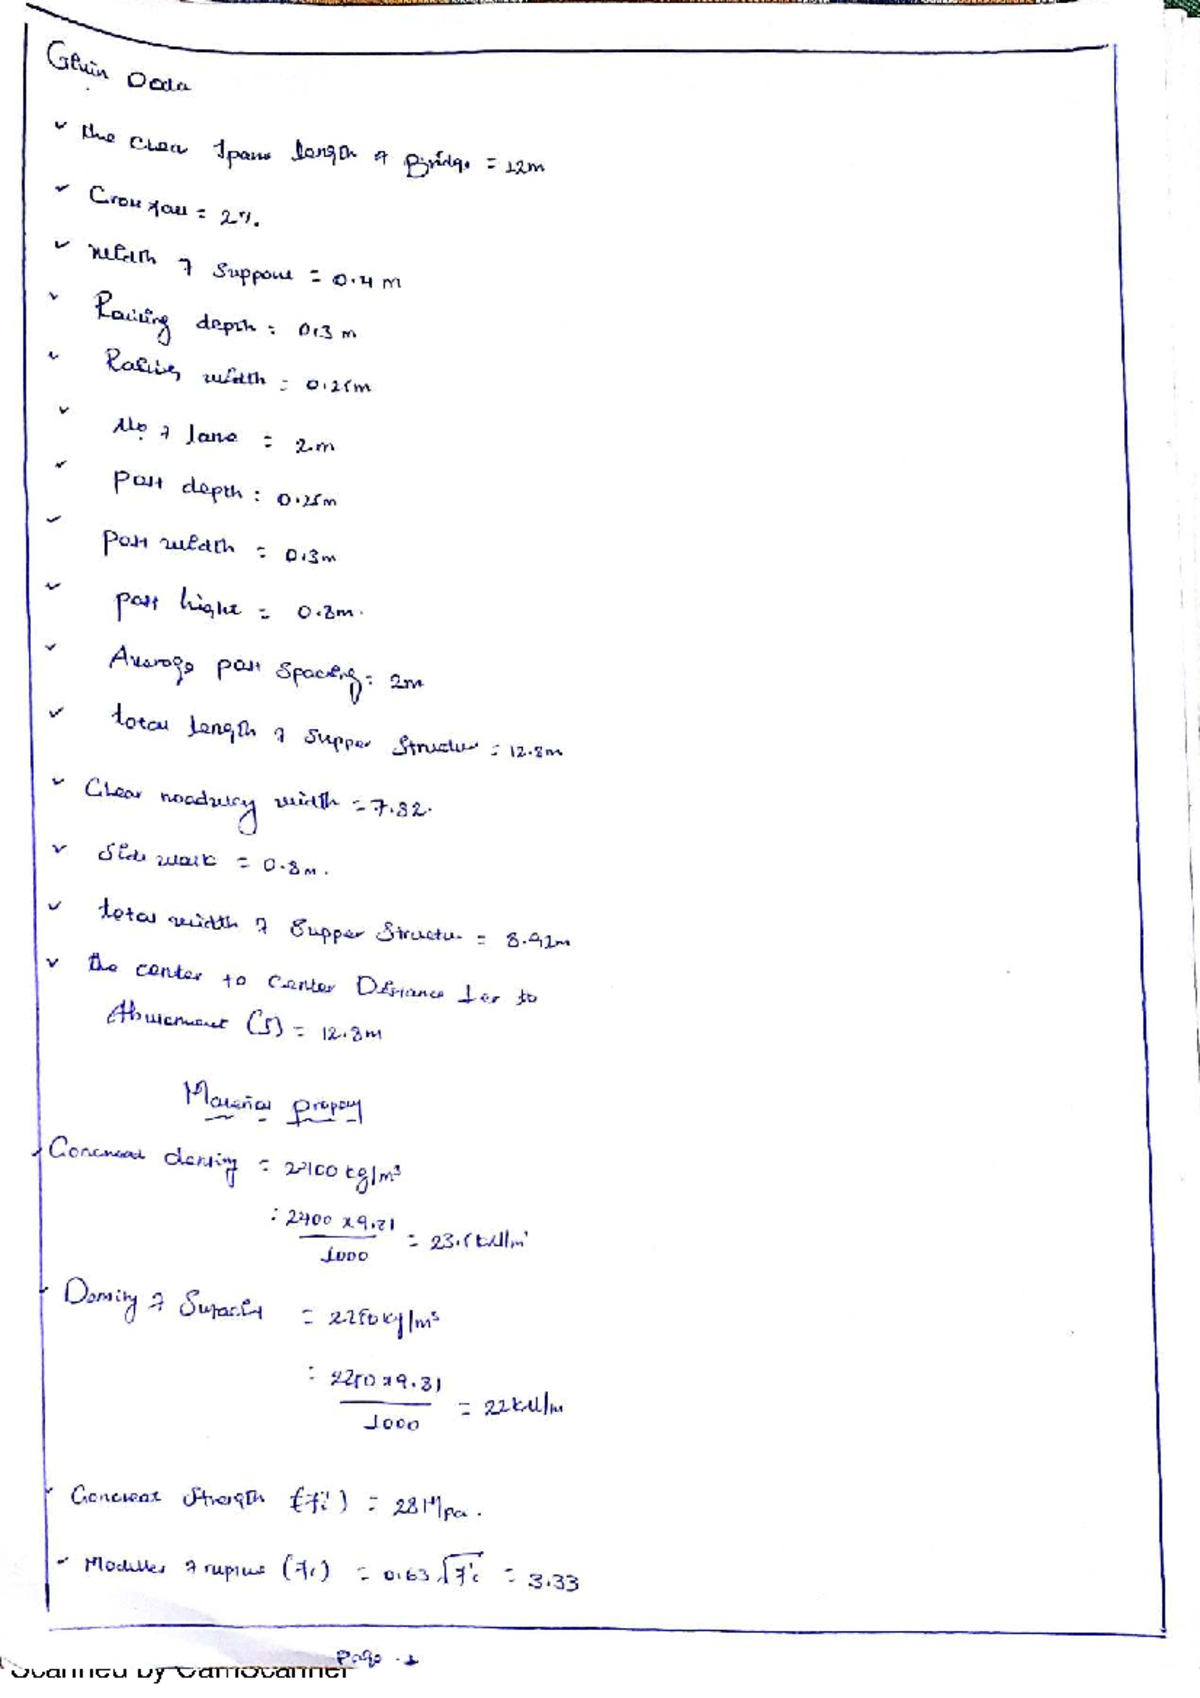 Given Data
✓ the Clear span length of Bridge = 12m
✓ Cross fall = 2%.
✓ width of support = 0.4m
✓ Railing depth = 0.3m
✓ Railing width = 0.25m
✓ No of lane = 2m
✓ Post depth = 0.25m
✓ Post width = 0.3m
✓ post hight = 0.8m.
✓ Average post Spacing = 2m
✓ total length of supper structur = 12.8m
✓ Clear roadway width = 7.32.
✓ Side walk = 0.8m.
✓ total width of Supper Structur = 8.92m
✓ the center to center Distance to
Abutement (S) = 12.8m
Material propey
✓ Concreat density = 2400 kg/m³
= 2400 x 9.81 / 1000 = 23.5 kN/m³
✓ Density of Surfacing = 2250 kg/m³
= 2250 x 9.81 / 1000 = 22 kN/m
✓ Concreat Strength (fc') = 28 Mpa.
✓ Modules of rupture (fr) = 0.63 √f'c = 3.33
Page . 1
Scanned by CamScanner